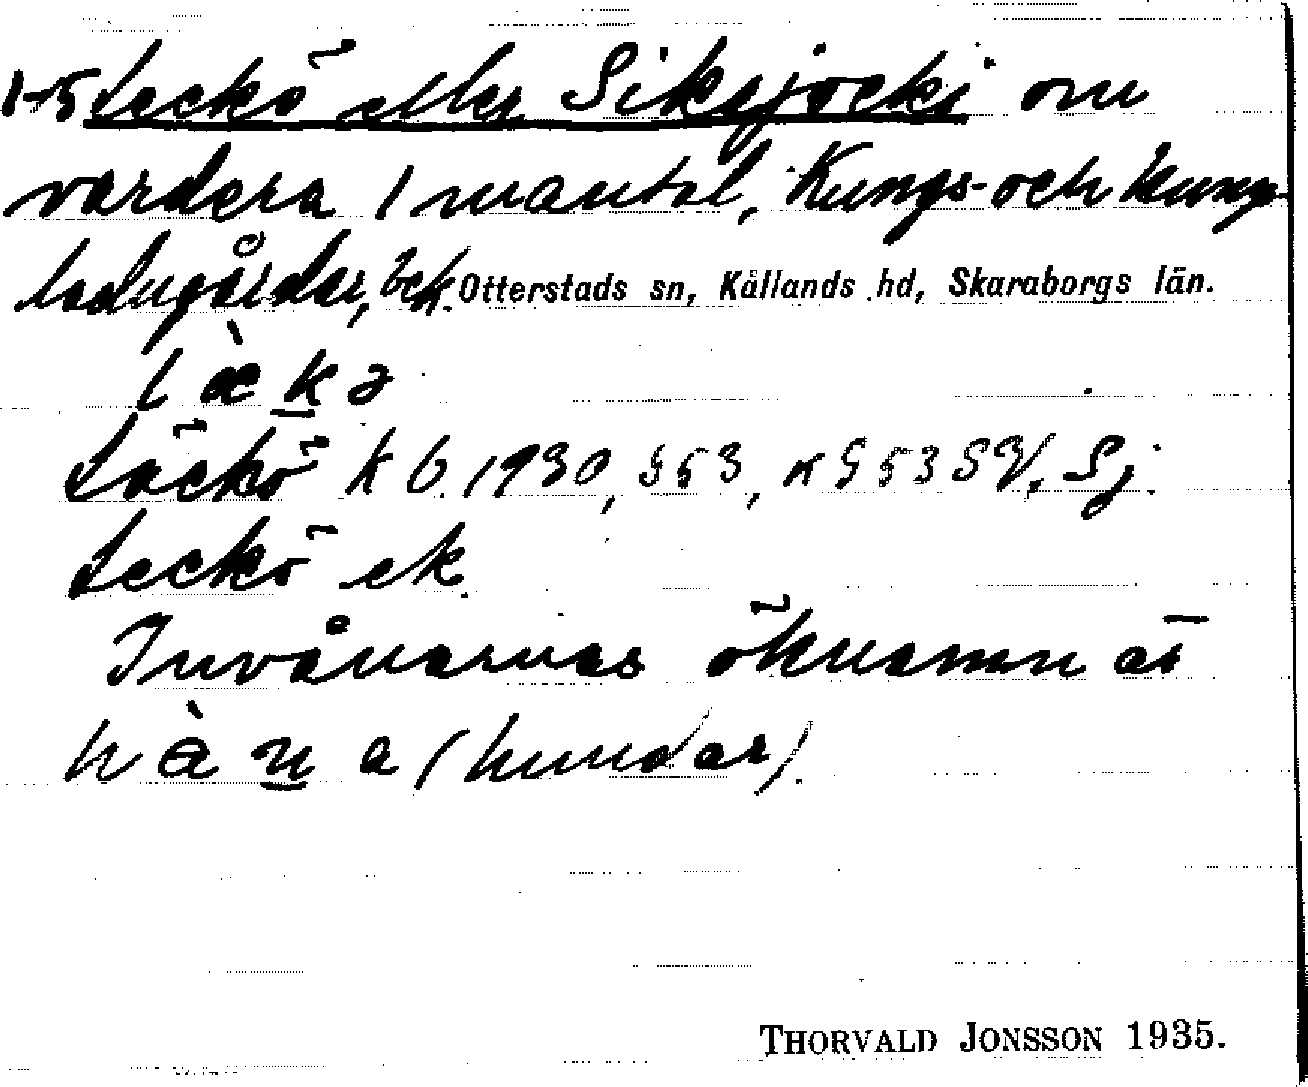 1-5 Leckö eller Siksjocki om
vardera 1 mantal, Kungs- och kungs-
ladugårdar, bek. Otterstads sn, Kållands hd, Skaraborgs län.
l æ̀ k ə
Läckö k b. 1930, § 53, Sj.
Leckö ek.
Invånarnas öknamn är
h à n a (hundar).
THORVALD JONSSON 1935.